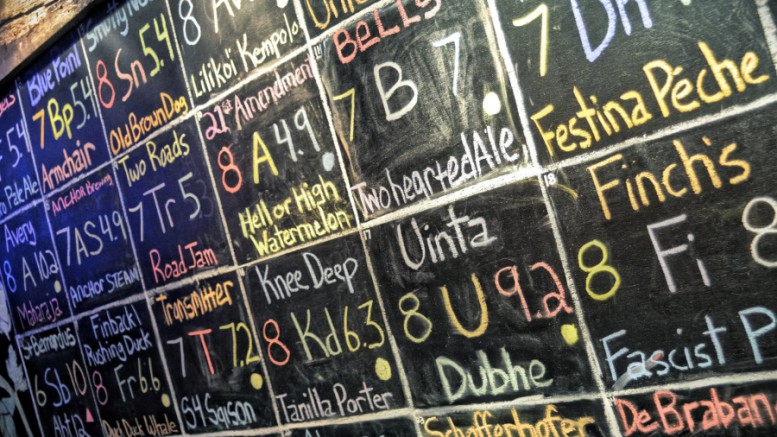 Blue Point
7 Bp 5.4
Armchair
8 Sn 5.4
Old Brown Dog
8
Lilikoi Kempolo
BELLS
7 B 7
Two hearted Ale
7
Festina Pêche
5.4
Pale Ale
ANCHOR Brewing
7 AS 4.9
ANCHOR STEAM
Two Roads
7 Tr 5
Road Jam
21st Amendment
8 A 4.9
Hell or High
Watermelon
Uinta
8 U 9.2
Dubhe
18
Finch's
8 Fi 8
Fascist P
Avery
8 A 10.2
Maharaja
Finback
Rushing Duck
8 Fr 6.6
Duck Whale
Transmitter
7 T 7.2
S4 Saison
Knee Deep
8 Kd 6.3
Tanilla Porter
St Bernardus
6 Sb 10
Abt 12
Schofferhofer
De Braban